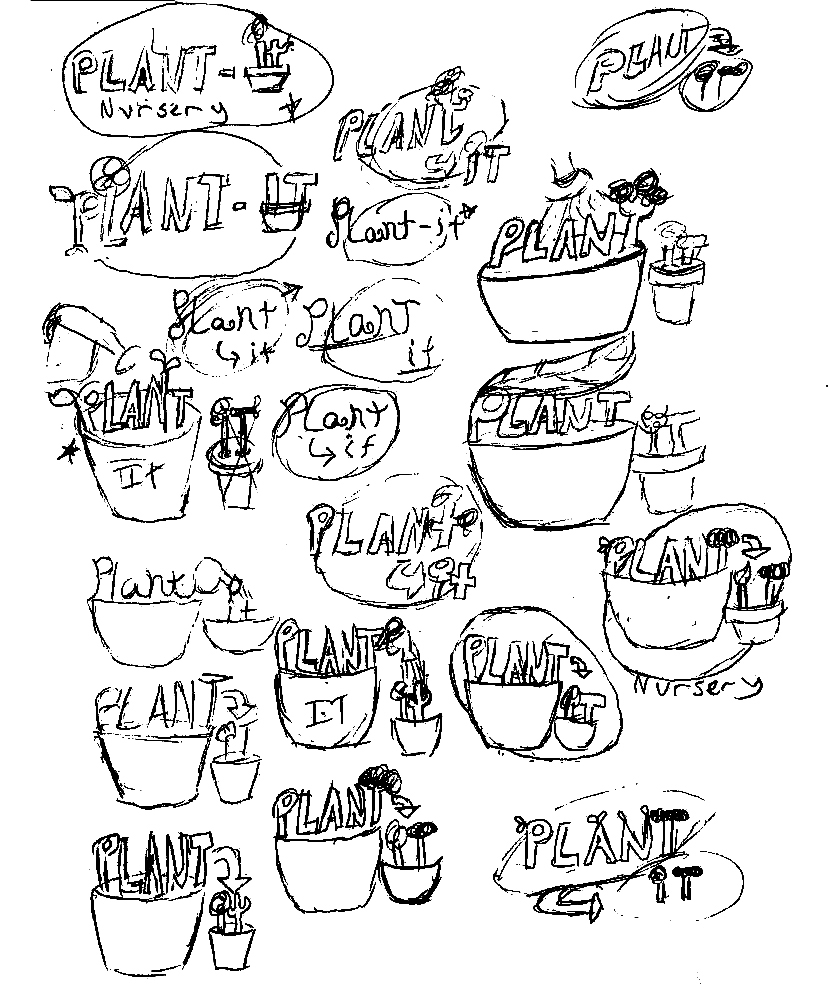 PLANT-
Nursery
PLANT
IT
PLANT
IT
PLANT-IT
Plant-it
PLANT
IT
Plant
it
Plant
it
PLANT
It
IT
Plant
it
PLANT
IT
PLANT
it
PLANT
IT
Nursery
Plant
it
PLANT
IT
PLANT
IT
PLANT
IT
PLANT
IT
PLANT
IT
PLANT
IT